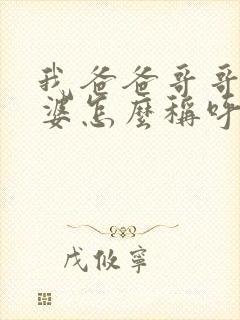 我爸爸哥哥
婆怎麼稱呼
戊攸寧